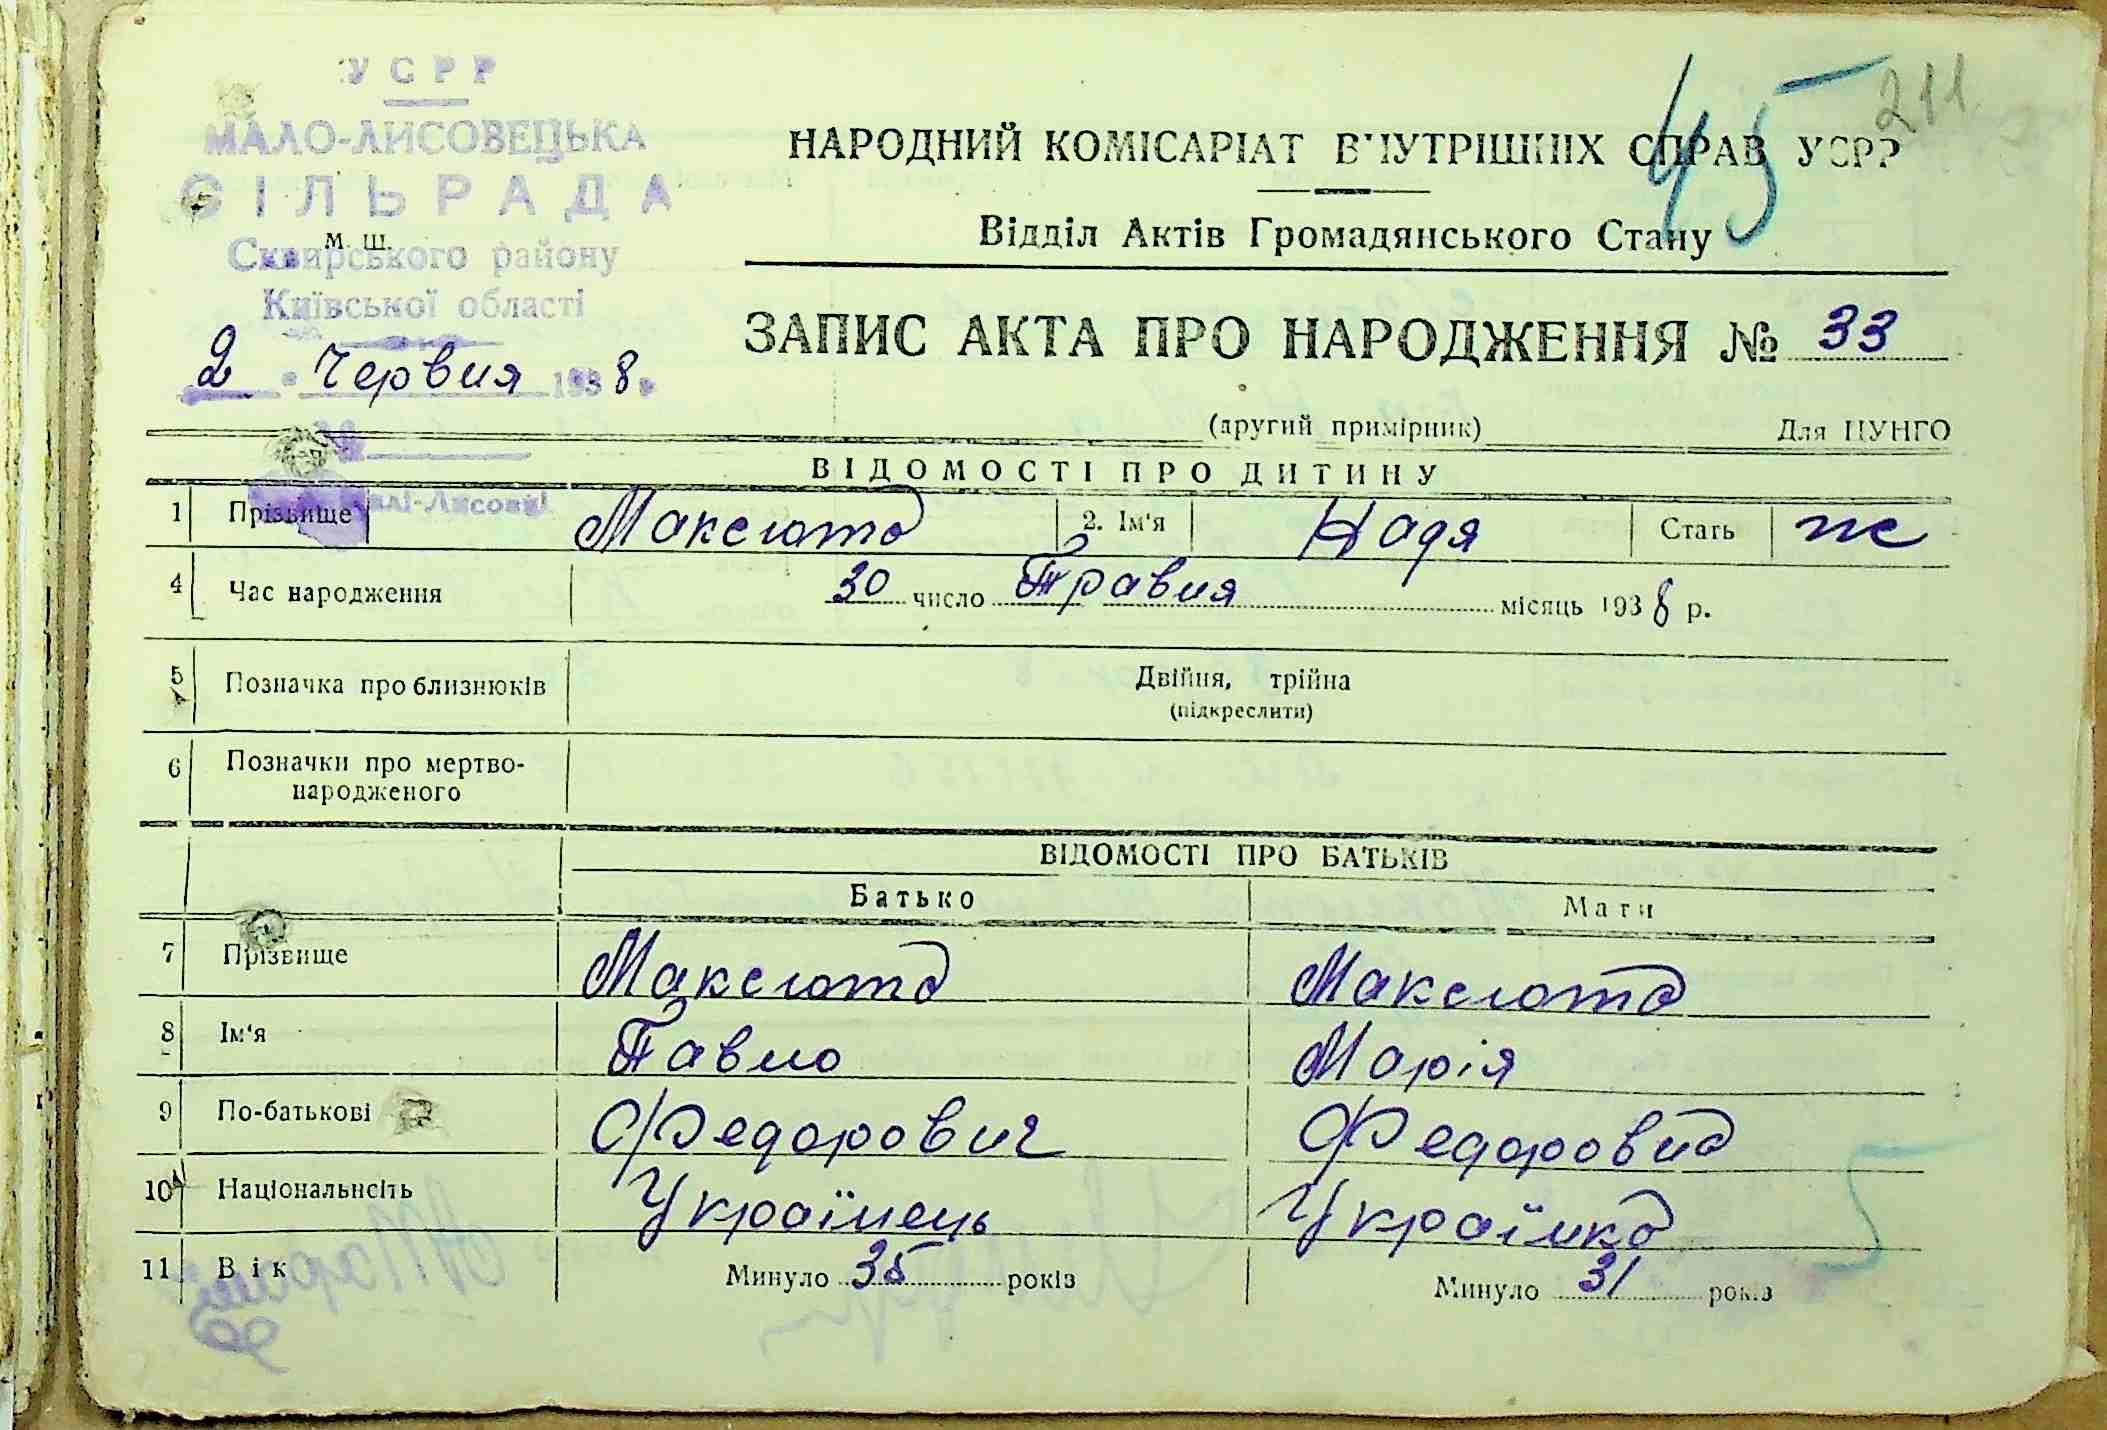 УСРР
МАЛО-ЛИСОВЕЦЬКА
СІЛЬРАДА
М. Ш.
Сквирського району
Київської області
2 Червня 1938 р.
45
211
НАРОДНИЙ КОМІСАРІАТ ВНУТРІШНІХ СПРАВ УСРР
Відділ Актів Громадянського Стану
ЗАПИС АКТА ПРО НАРОДЖЕННЯ № 33
(другий примірник) Для ЦУНГО
ВІДОМОСТІ ПРО ДИТИНУ
1 Прізвище Максюта 2. Ім'я Надя Стать ж
4 Час народження 30 число Травня місяць 1938 р.
5 Позначка про близнюків Двійня, трійна
(підкреслити)
6 Позначки про мертво-
народженого
ВІДОМОСТІ ПРО БАТЬКІВ
Батько Мати
7 Прізвище Максюта Максюта
8 Ім'я Павло Марія
9 По-батькові Федорович Федоровна
10 Національнсіть Українець Українка
11 Вік Минуло 35 років Минуло 31 років
5